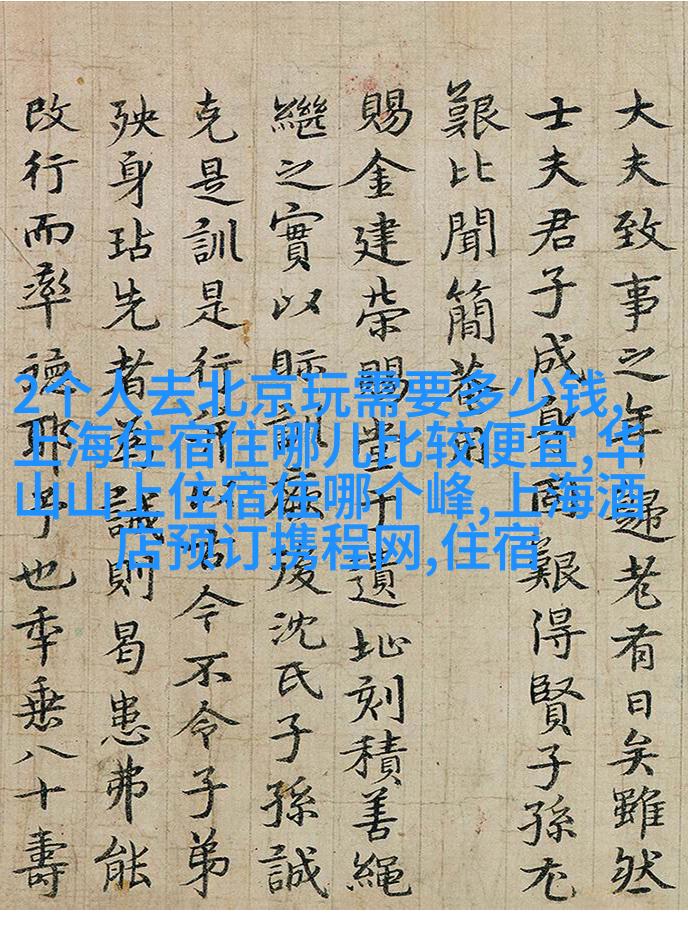 大夫致事之年歸老有日矣雖然
士夫君子成身而艱得賢子孫尤
艱比聞簡菴
賜金建榮賜堂于遺址刻積善繩
繼之實以貽訓厥後沈氏子孫誠
克是訓是行令不令子弟
殃身玷先者為誡則曷患弗能
改行而率德耶予也年垂八十壽
2个人去北京玩需要多少钱,
上海住宿住哪儿比较便宜,华
山山上住宿住哪个峰,上海酒
店预订携程网,住宿